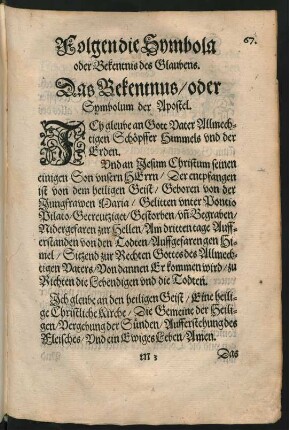 67.
Folgen die Symbola
oder Bekentnis des Glaubens.
Das Bekentnus / oder
Symbolum der Apostel.
ICh gleube an Gott Vater Allmech-
tigen Schöpffer Himmels vnd der
Erden.
Vnd an Jesum Christum seinen
einigen Son vnsern HErrn / Der empfangen
ist von dem heiligen Geist / Geboren von der
Jungfrawen Maria / Gelitten vnter Pontio
Pilato / Gecreutziget / Gestorben / vñ Begraben /
Nidergefaren zur Hellen / Am dritten tage Auff-
erstanden von den Todten / Auffgefaren gen Hi-
mel / Sitzend zur Rechten Gottes des Allmech-
tigen Vaters / Von dannen Er kommen wird / zu
Richten die Lebendigen vnd die Todten.
Ich gleube an den heiligen Geist / Eine heili-
ge Christliche Kirche / Die Gemeine der Heili-
gen / Vergebung der Sünden / Aufferstehung des
Fleisches / Vnd ein Ewiges Leben / Amen.
M 3
Das